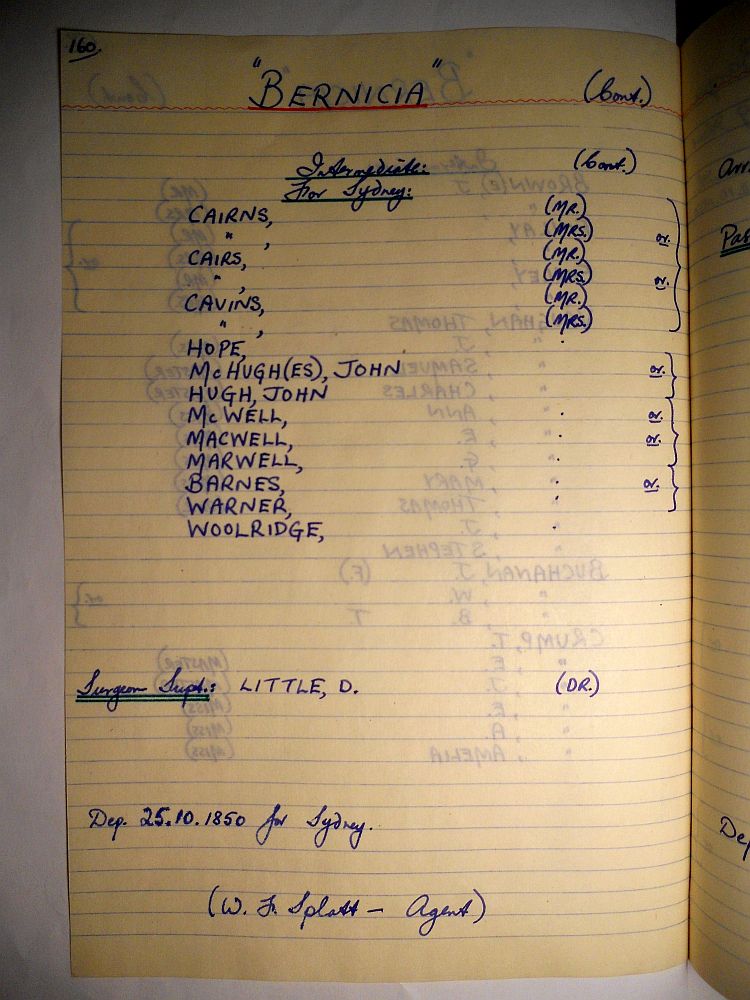 160.
"BERNICIA" (Cont.)
Intermediate: (Cont.)
For Sydney:
CAIRNS, (MR.)
" , (MRS.) or.
CAIRS, (MR.)
" , (MRS.) or.
CAVINS, (MR.)
" , (MRS.)
HOPE,
McHUGH(ES), JOHN or.
HUGH, JOHN
McWELL, or.
MACWELL, or.
MARWELL,
BARNES, or.
WARNER,
WOOLRIDGE,
Surgeon Supt.: LITTLE, D. (DR.)
Dep. 25.10.1850 for Sydney.
(W. F. Splatt — Agent)